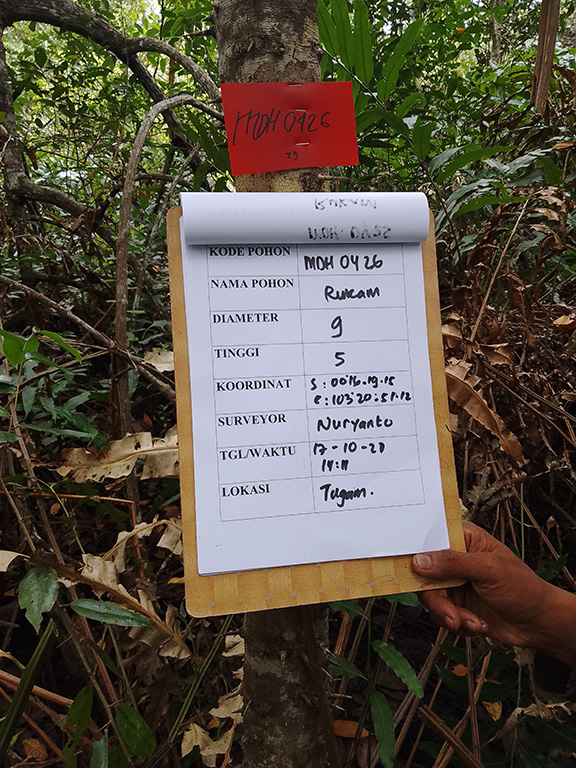 MDH 0426
29
KODE POHON MDH 0426
NAMA POHON Rukam
DIAMETER 9
TINGGI 5
KOORDINAT S : 00'16.19.15
E : 103'20:51.12
SURVEYOR Nuryanto
TGL/WAKTU 17-10-21
14:11
LOKASI Tugam.